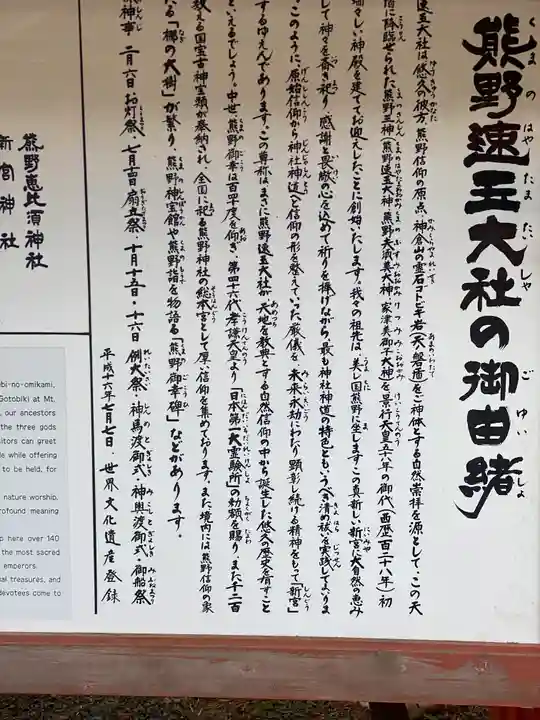 熊野速玉大社の御由緒
くまのはやたまたいしゃ ごゆいしょ
速玉大社は悠久の彼方、熊野信仰の原点、神倉山の霊石ゴトビキ岩(天ノ磐盾)をご神体とする自然崇拝を源として、この天
降臨せられた熊野三神(熊野速玉大神・熊野夫須美大神・家津美御子大神)を、景行天皇五十八年の御代(西歴百二十八年)初
瑞々しい神殿を建ててお迎えしたことに創始いたします。我々の祖先は、美し国熊野に坐します、この真新しい新宮に大自然の恵み
して神々を斎き祀り、感謝と畏敬の心を込めて祈りを捧げながら、最も神社神道の特色ともいうべき清め祓いを実践してまいりま
このように、原始信仰から神社神道へと信仰の形を整えていった厳儀を、未来永劫にわたり顕彰し続ける精神をもって「新宮」
するゆえんであります。この尊称はまさに熊野速玉大社が、天地を教典とする自然信仰の中から誕生した悠久の歴史を有すこと
といえるでしょう。中世、熊野御幸は百四十度を仰ぎ、第四十六代孝謙天皇より「日本第一大霊験所」の勅額を賜り、また千二百
数える国宝古神宝類が奉納され、全国に祀る熊野神社の総本宮として厚い信仰を集めております。また境内には熊野信仰の象
たる「梛の大樹」が繁り、熊野神宝館や熊野詣を物語る「熊野御幸碑」などがあります。
神事 二月六日お灯祭・七月十四日扇立祭・十月十五日・十六日 例大祭・神馬渡御式・神輿渡御式・御船祭
平成十六年七月七日・世界文化遺産登録
熊野恵比須神社
新宮神社
obi-no-omikami,
Gotobiki) at Mt.
, our ancestors
the three gods
sitors can greet
le while offering
to be held, for
nature worship.
rofound meaning
p here over 140
the most sacred
emperors.
al treasures, and
devotees come to